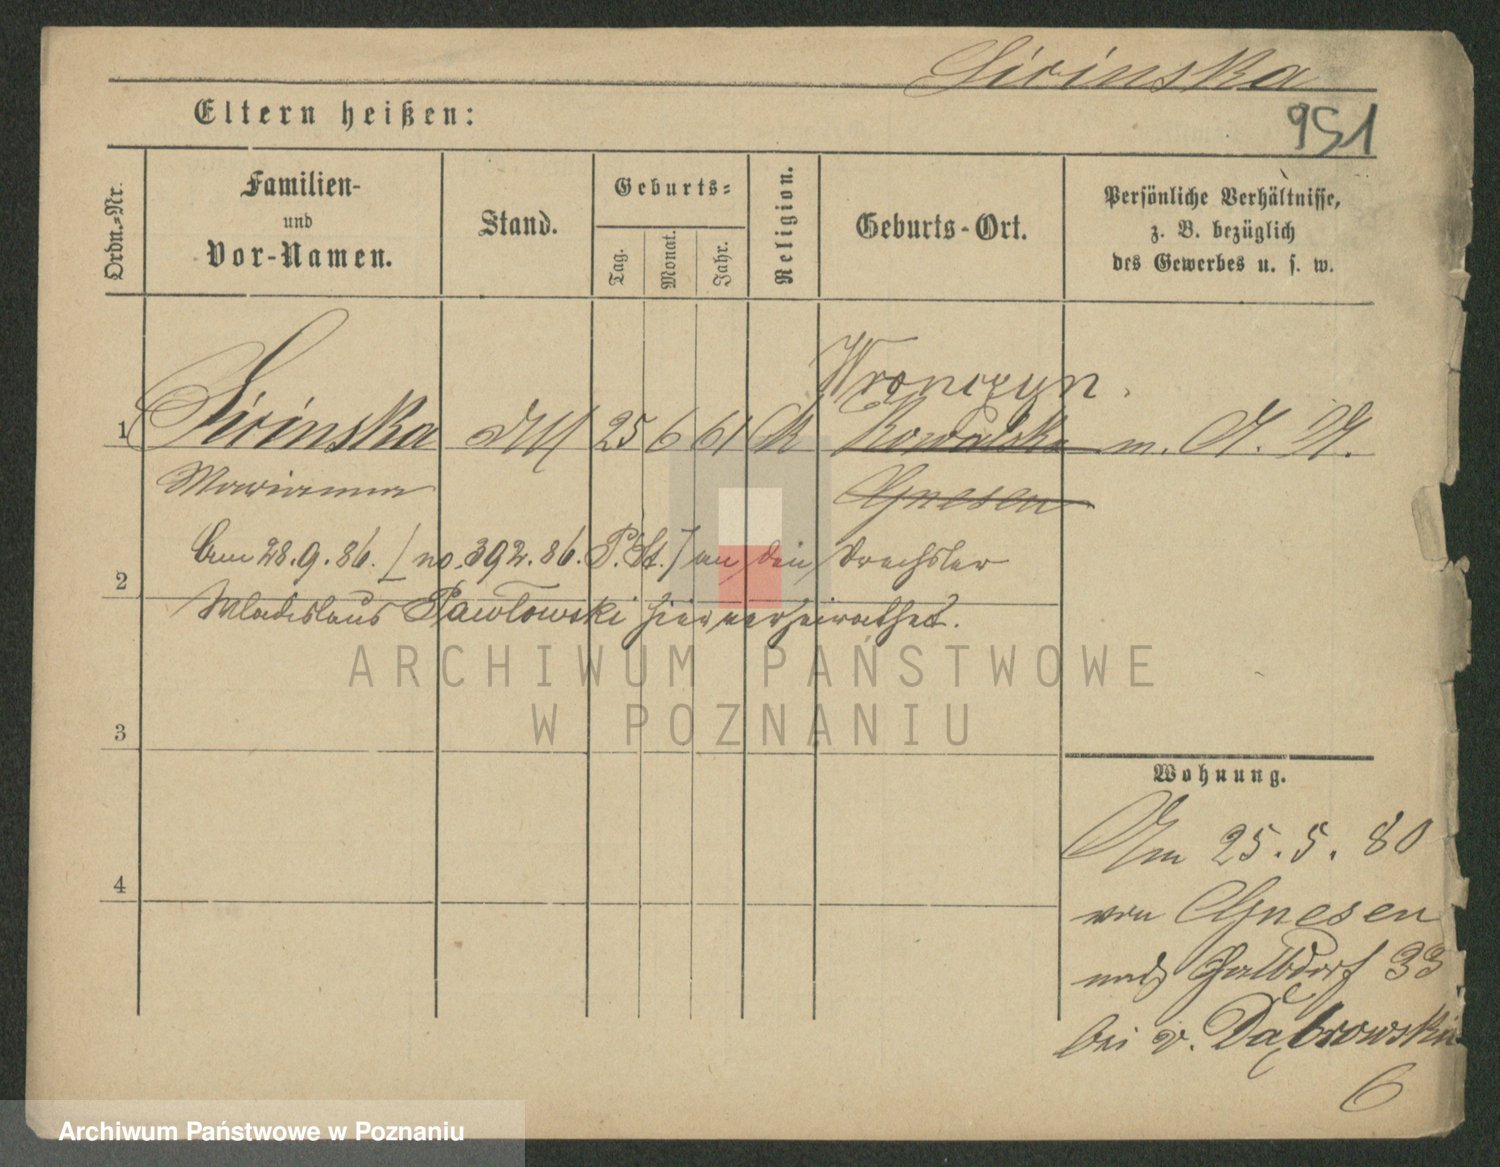 Sirinska
Eltern heißen:
951
Ordn.-Nr.
Familien-
und
Vor-Namen.
Stand.
Geburts-
Tag.
Monat.
Jahr.
Religion.
Geburts-Ort.
Persönliche Verhältnisse,
z. B. bezüglich
des Gewerbes u. s. w.
Wronczyn.
1 Sirinska 25 6 61 K Kowalske m. A. W.
Marianna Gnesen
Am 28.9.86. [no. 392.86. P. St.] an den Drechsler
2
Wladislaus Pawlowski hier verheirathet.
ARCHIWUM PAŃSTWOWE
W POZNANIU
3
Wohnung.
Am 25.5.80
4
von Gnesen
nach Halbdorf 33
bei v. Dąbrowski
6
Archiwum Państwowe w Poznaniu